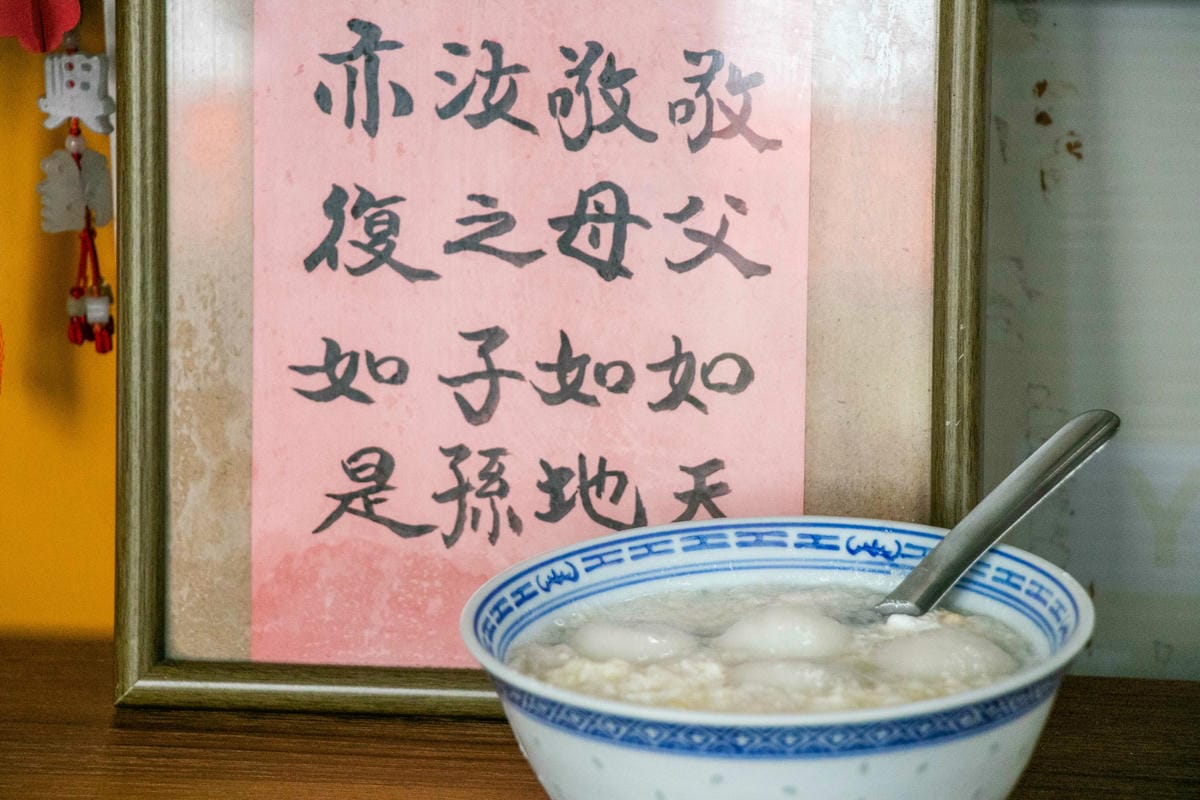 敬父如天
敬母如地
汝之子孫
亦復如是